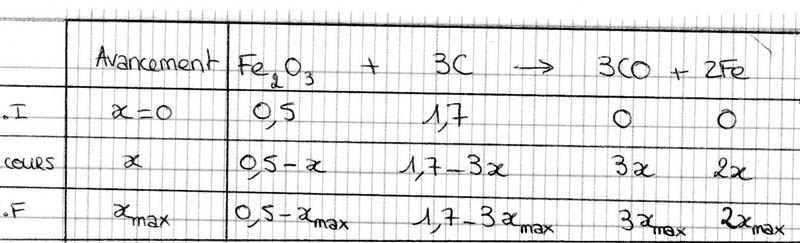 Avancement Fe₂O₃ + 3C → 3CO + 2Fe
.I x=0 0,5 1,7 0 0
cours x 0,5-x 1,7-3x 3x 2x
.F xmax 0,5-xmax 1,7-3xmax 3xmax 2xmax